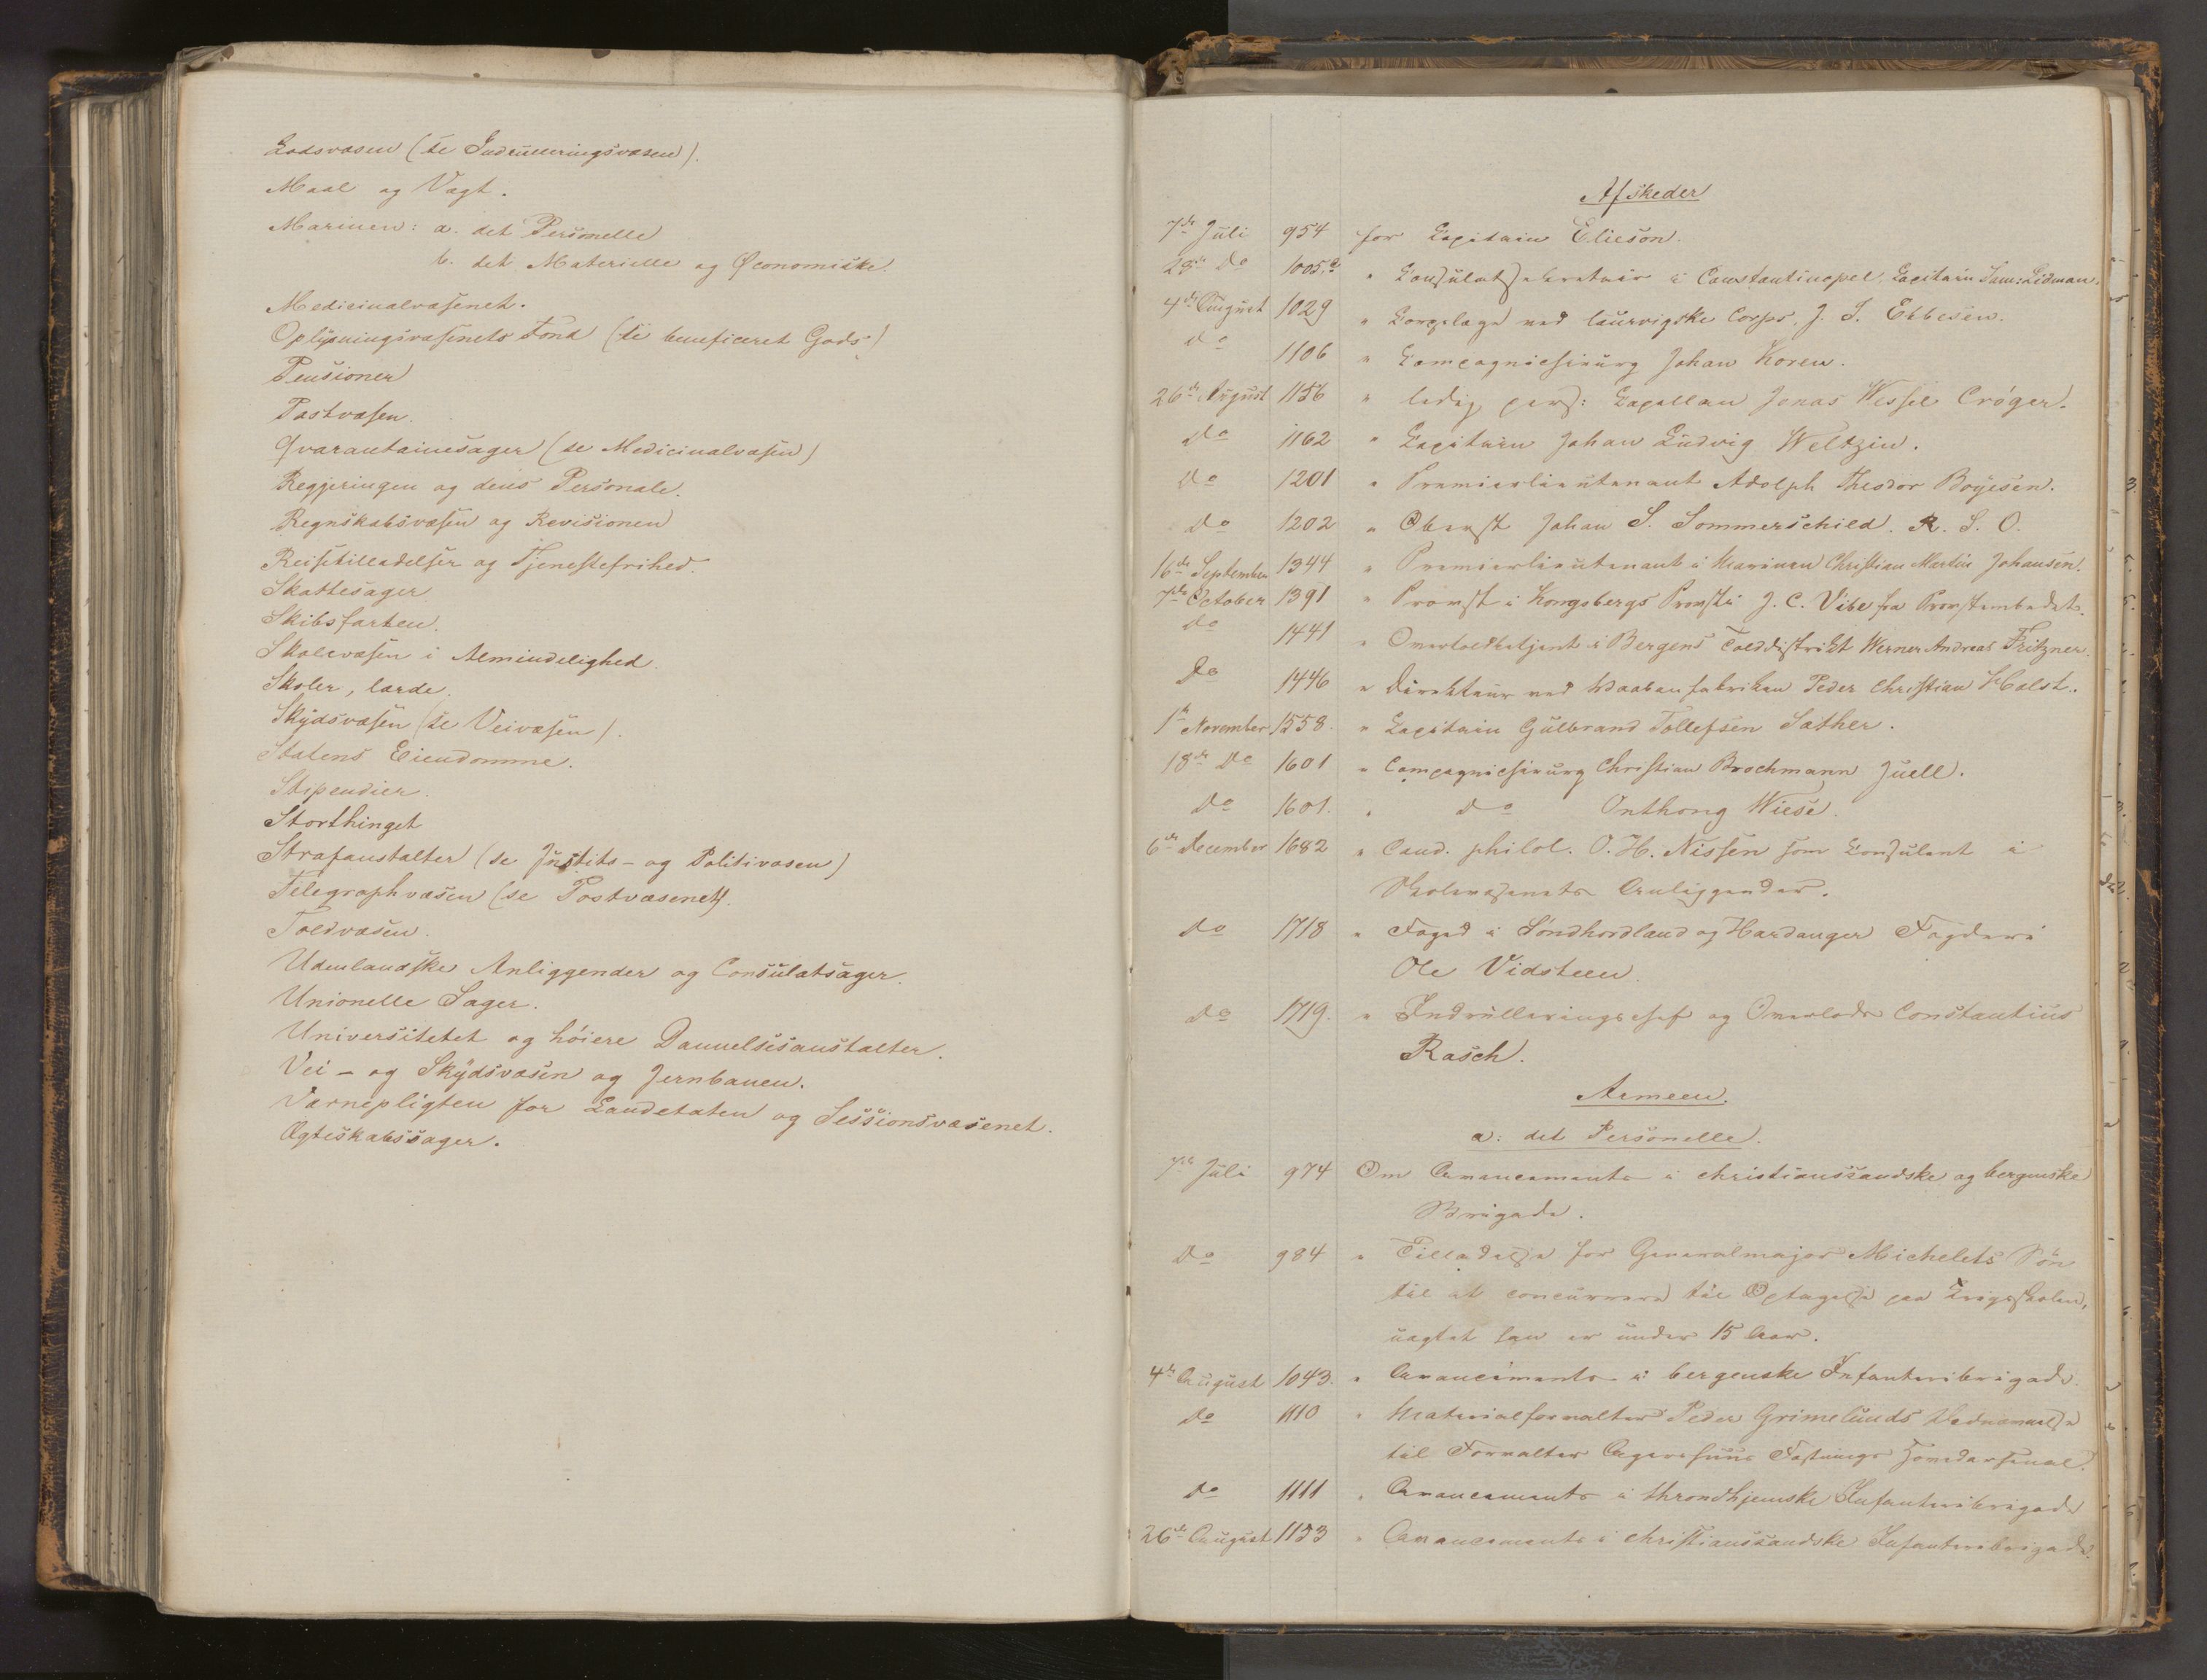 Lodsvæsen (se Indrulleringsvæsen).
Maal og Vægt.
Marinen: a. det Personelle
b. det Materielle og Øconomiske.
Medicinalvæsenet.
Oplysningsvæsenets Fond (se beneficeret Gods)
Pensioner
Postvæsen.
Qvarantainesager (se Medicinalvæsen)
Regjeringen og dens Personale.
Regnskabsvæsen og Revisionen
Reisetilladelser og Tjenestefrihed.
Skattesager
Skibsfarten.
Skolevæsen i Almindelighed.
Skoler, lærde.
Skydsvæsen (se Veivæsen).
Statens Eiendomme.
Stipendier.
Storthinget
Strafanstalter (se Justits- og Politivæsen)
Telegraphvæsen (se Postvæsenet).
Toldvæsen.
Udenlandske Anliggender og Consulatsager.
Unionelle Sager.
Universitetet og höiere Dannelsesanstalter.
Vei- og Skydsvæsen og Jernbanen.
Værnepligten for Landetaten og Sessionsvæsenet.
Ægteskabssager.
Afskeder
7de Juli 954 for Capitain Elieson.
28de Do 1005 " Consulatsecretair i Constantinopel, Capitain Sam: Lidman.
4de August 1029 " Corpslæge ved laurvigske Corps, J. T. Ebbesen.
do 1106 " Compagniechirurg Johan Koren.
26de August 1156 " ledig pers: Capellan Jonas Wessel Cröger.
do 1162 " Capitain Johan Ludvig Weltzin.
do 1201 " Premierlieutenant Adolph Theodor Boyesen.
do 1202 " Oberst Johan S. Sommerschild. R. S. O.
16de September 1344 " Premierlieutenant i Marinen Christian Martin Johansen.
7de October 1391 " Provst i Kongsbergs Provsti J. C. Vibe fra Provsteembedet.
do 1441 " Overtoldbetjent i Bergens Tolddistrikt Werner Andreas Fritzner.
Do 1446 " Direkteur ved Vaabenfabriken Peder Christian Holst.
1ste November 1558. " Capitain Gulbrand Tollefsen Sæther.
18de Do 1601 " Compagniechirurg Christian Brochmann Juell.
do 1601. " do Onthong Wiese.
6de December 1682 " Cand. philol. O. H. Nissen som Consulent i
Skolevæsenets Anliggender.
do 1718 " Foged i Söndhordland og Hardanger Fogderi
Ole Vidsteen.
do 1719. " Indrulleringschef og Overlods Constantius
Rasch.
Armeen.
a: det Personelle.
7de Juli 974 Om Avancements i christianssandske og bergenske
Brigade.
do 984 " Tilladelse for Generalmajor Michelets Sön
til at concurrere til Optagelse paa Krigsskolen,
uagtet han er under 15 Aar.
4de August 1043. " Avancements i bergenske Infanteribrigade.
do 1110 " Materialforvalter Peder Grimelunds Udnævnelse
til Forvalter Agershuus Fæstnings Hovedarsenal.
do 1111 " Avancements i throndhjemske Infanteribrigade
26de August 1153 " Avancements i christianssandske Infanteribrigade.